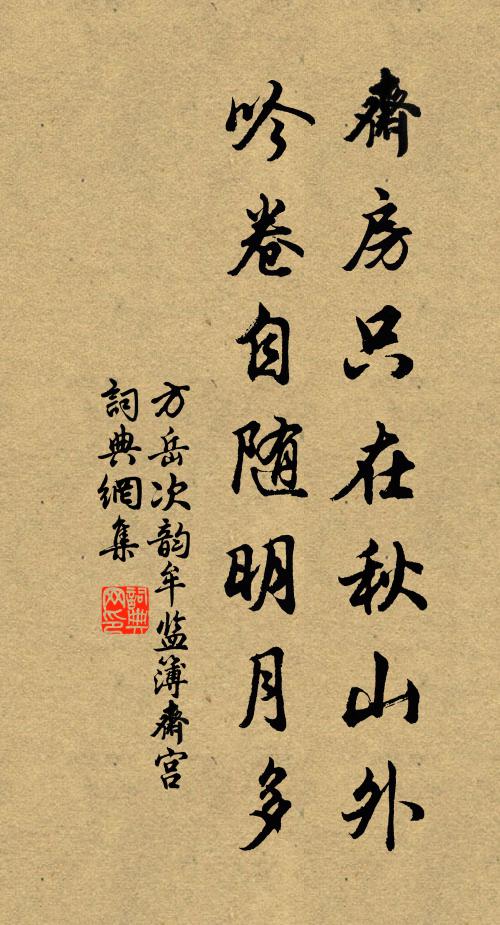 齋房只在秋山外
吟卷自随明月多
方岳次韵牟监簿齋宫
詞典網集
詞典
网印